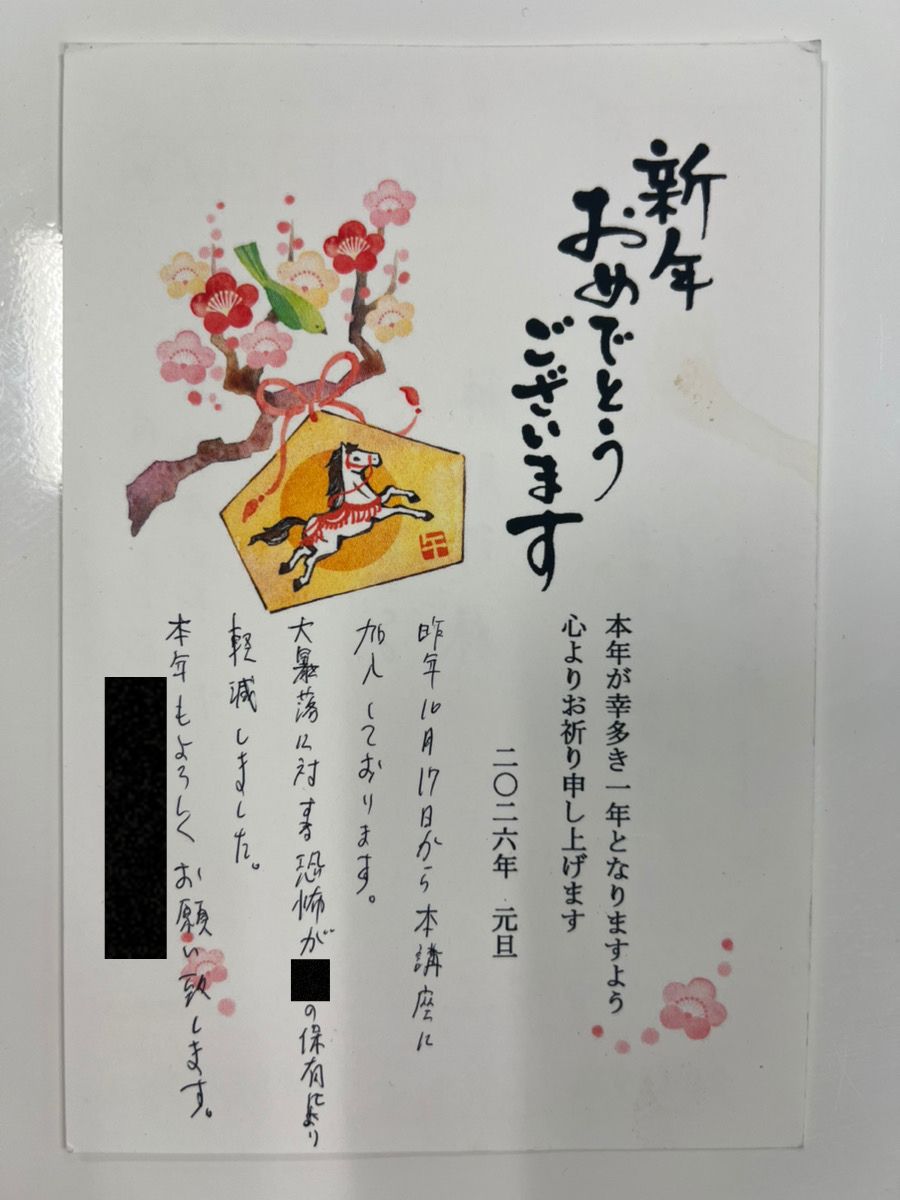 新年
おめでとう
ございます
本年が幸多き一年となりますよう
心よりお祈り申し上げます
二〇二六年 元旦
昨年10月17日から本講座に
加入しております。
大暴落に対する恐怖が
の保有により
軽減しました。
本年もよろしくお願い致します。
午